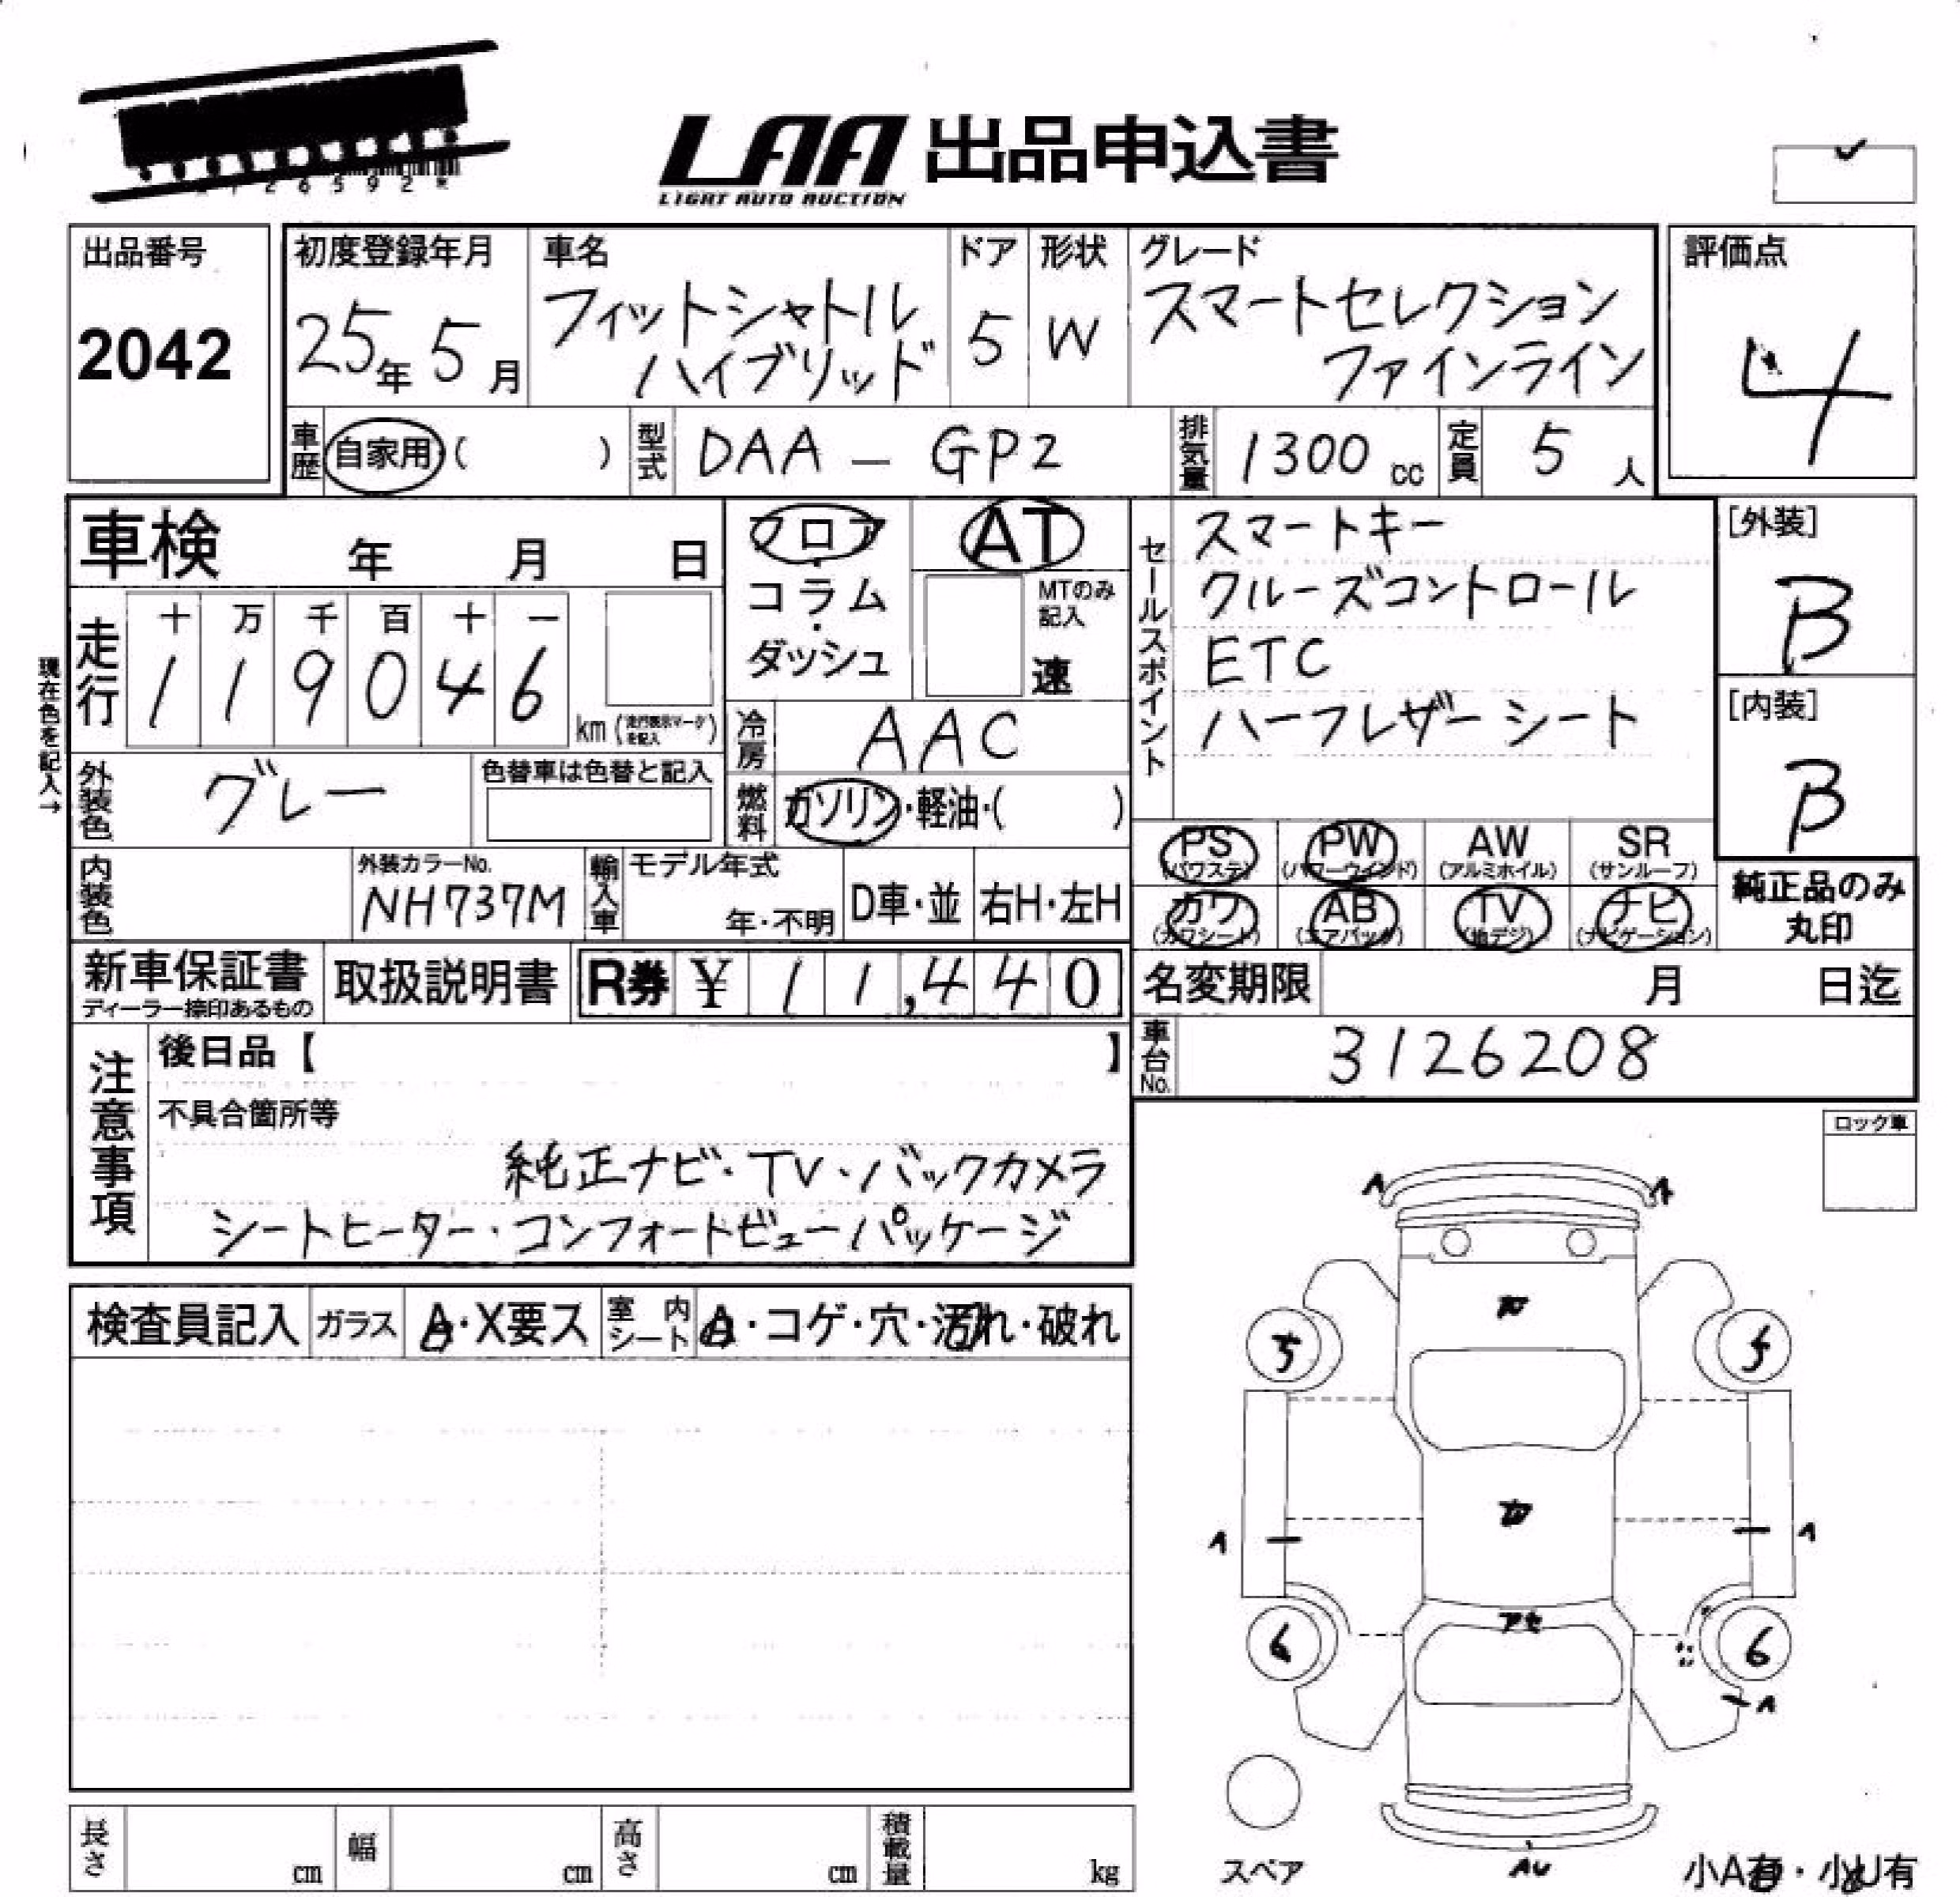 26592*
LAA 出品申込書
LIGHT AUTO AUCTION
出品番号
2042
初度登録年月
25年 5月
車名
フィットシャトル
ハイブリッド
ドア
5
形状
W
グレード
スマートセレクション
ファインライン
評価点
4
車歴
自家用 ( )
型式
DAA - GP2
排気量
1300 cc
定員
5 人
車検 年 月 日
フロア・コラム・ダッシュ
AT
MTのみ記入
速
セールスポイント
スマートキー
クルーズコントロール
ETC
ハーフレザーシート
[外装]
B
[内装]
B
現在色を記入→
走行
十 万 千 百 十 一
1 1 9 0 4 6
km (走行表示マークを記入)
冷房
AAC
外装色
グレー
色替車は色替と記入
燃料
ガソリン・軽油・( )
PS (パワステ)
PW (パワーウインド)
AW (アルミホイル)
SR (サンルーフ)
カワ (カワシート)
AB (エアバック)
TV (地デジ)
ナビ (ナビゲーション)
純正品のみ
丸印
内装色
外装カラーNo.
NH737M
輸入車
モデル年式
年・不明
D車・並
右H・左H
新車保証書
ディーラー捺印あるもの
取扱説明書
R券 ¥ 11,440
名変期限 月 日迄
車台No.
3126208
注意事項
後日品【 】
不具合箇所等
純正ナビ・TV・バックカメラ
シートヒーター・コンフォートビューパッケージ
ロック車
検査員記入
ガラス
A・X要ス
室内シート
A・コゲ・穴・汚れ・破れ
A
A
5
5
A
A
アセ
6
6
A
AU
スペア
小A有・小U有
長さ cm
幅 cm
高さ cm
積載量 kg